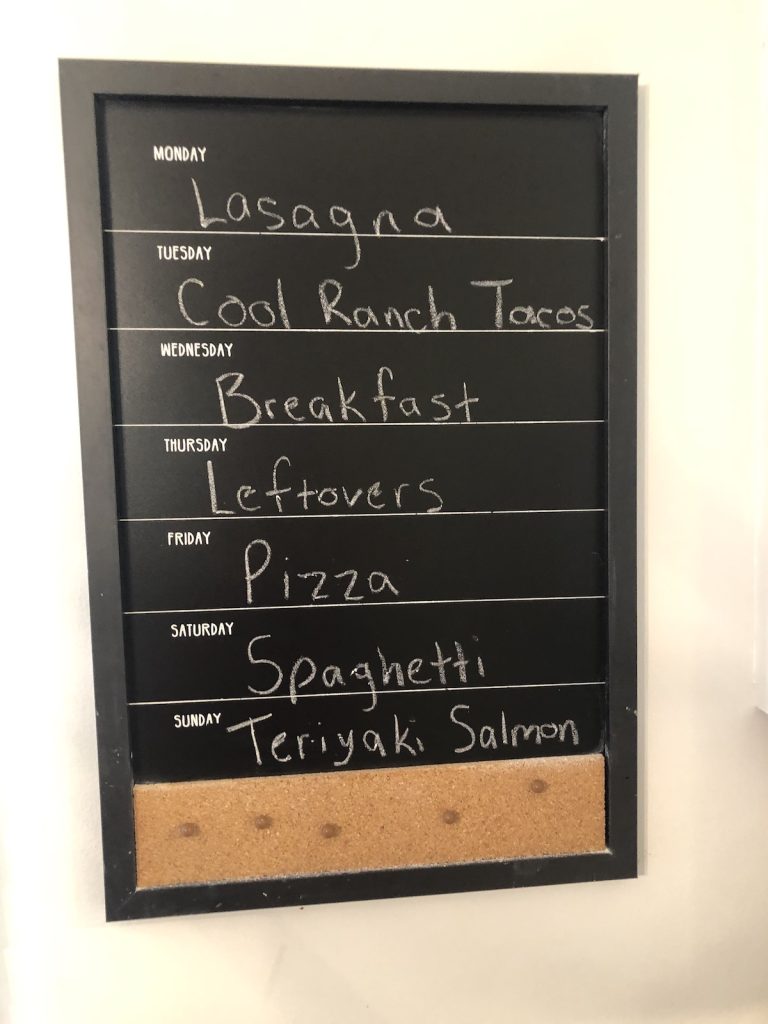 MONDAY
Lasagna
TUESDAY
Cool Ranch Tacos
WEDNESDAY
Breakfast
THURSDAY
Leftovers
FRIDAY
Pizza
SATURDAY
Spaghetti
SUNDAY
Teriyaki Salmon